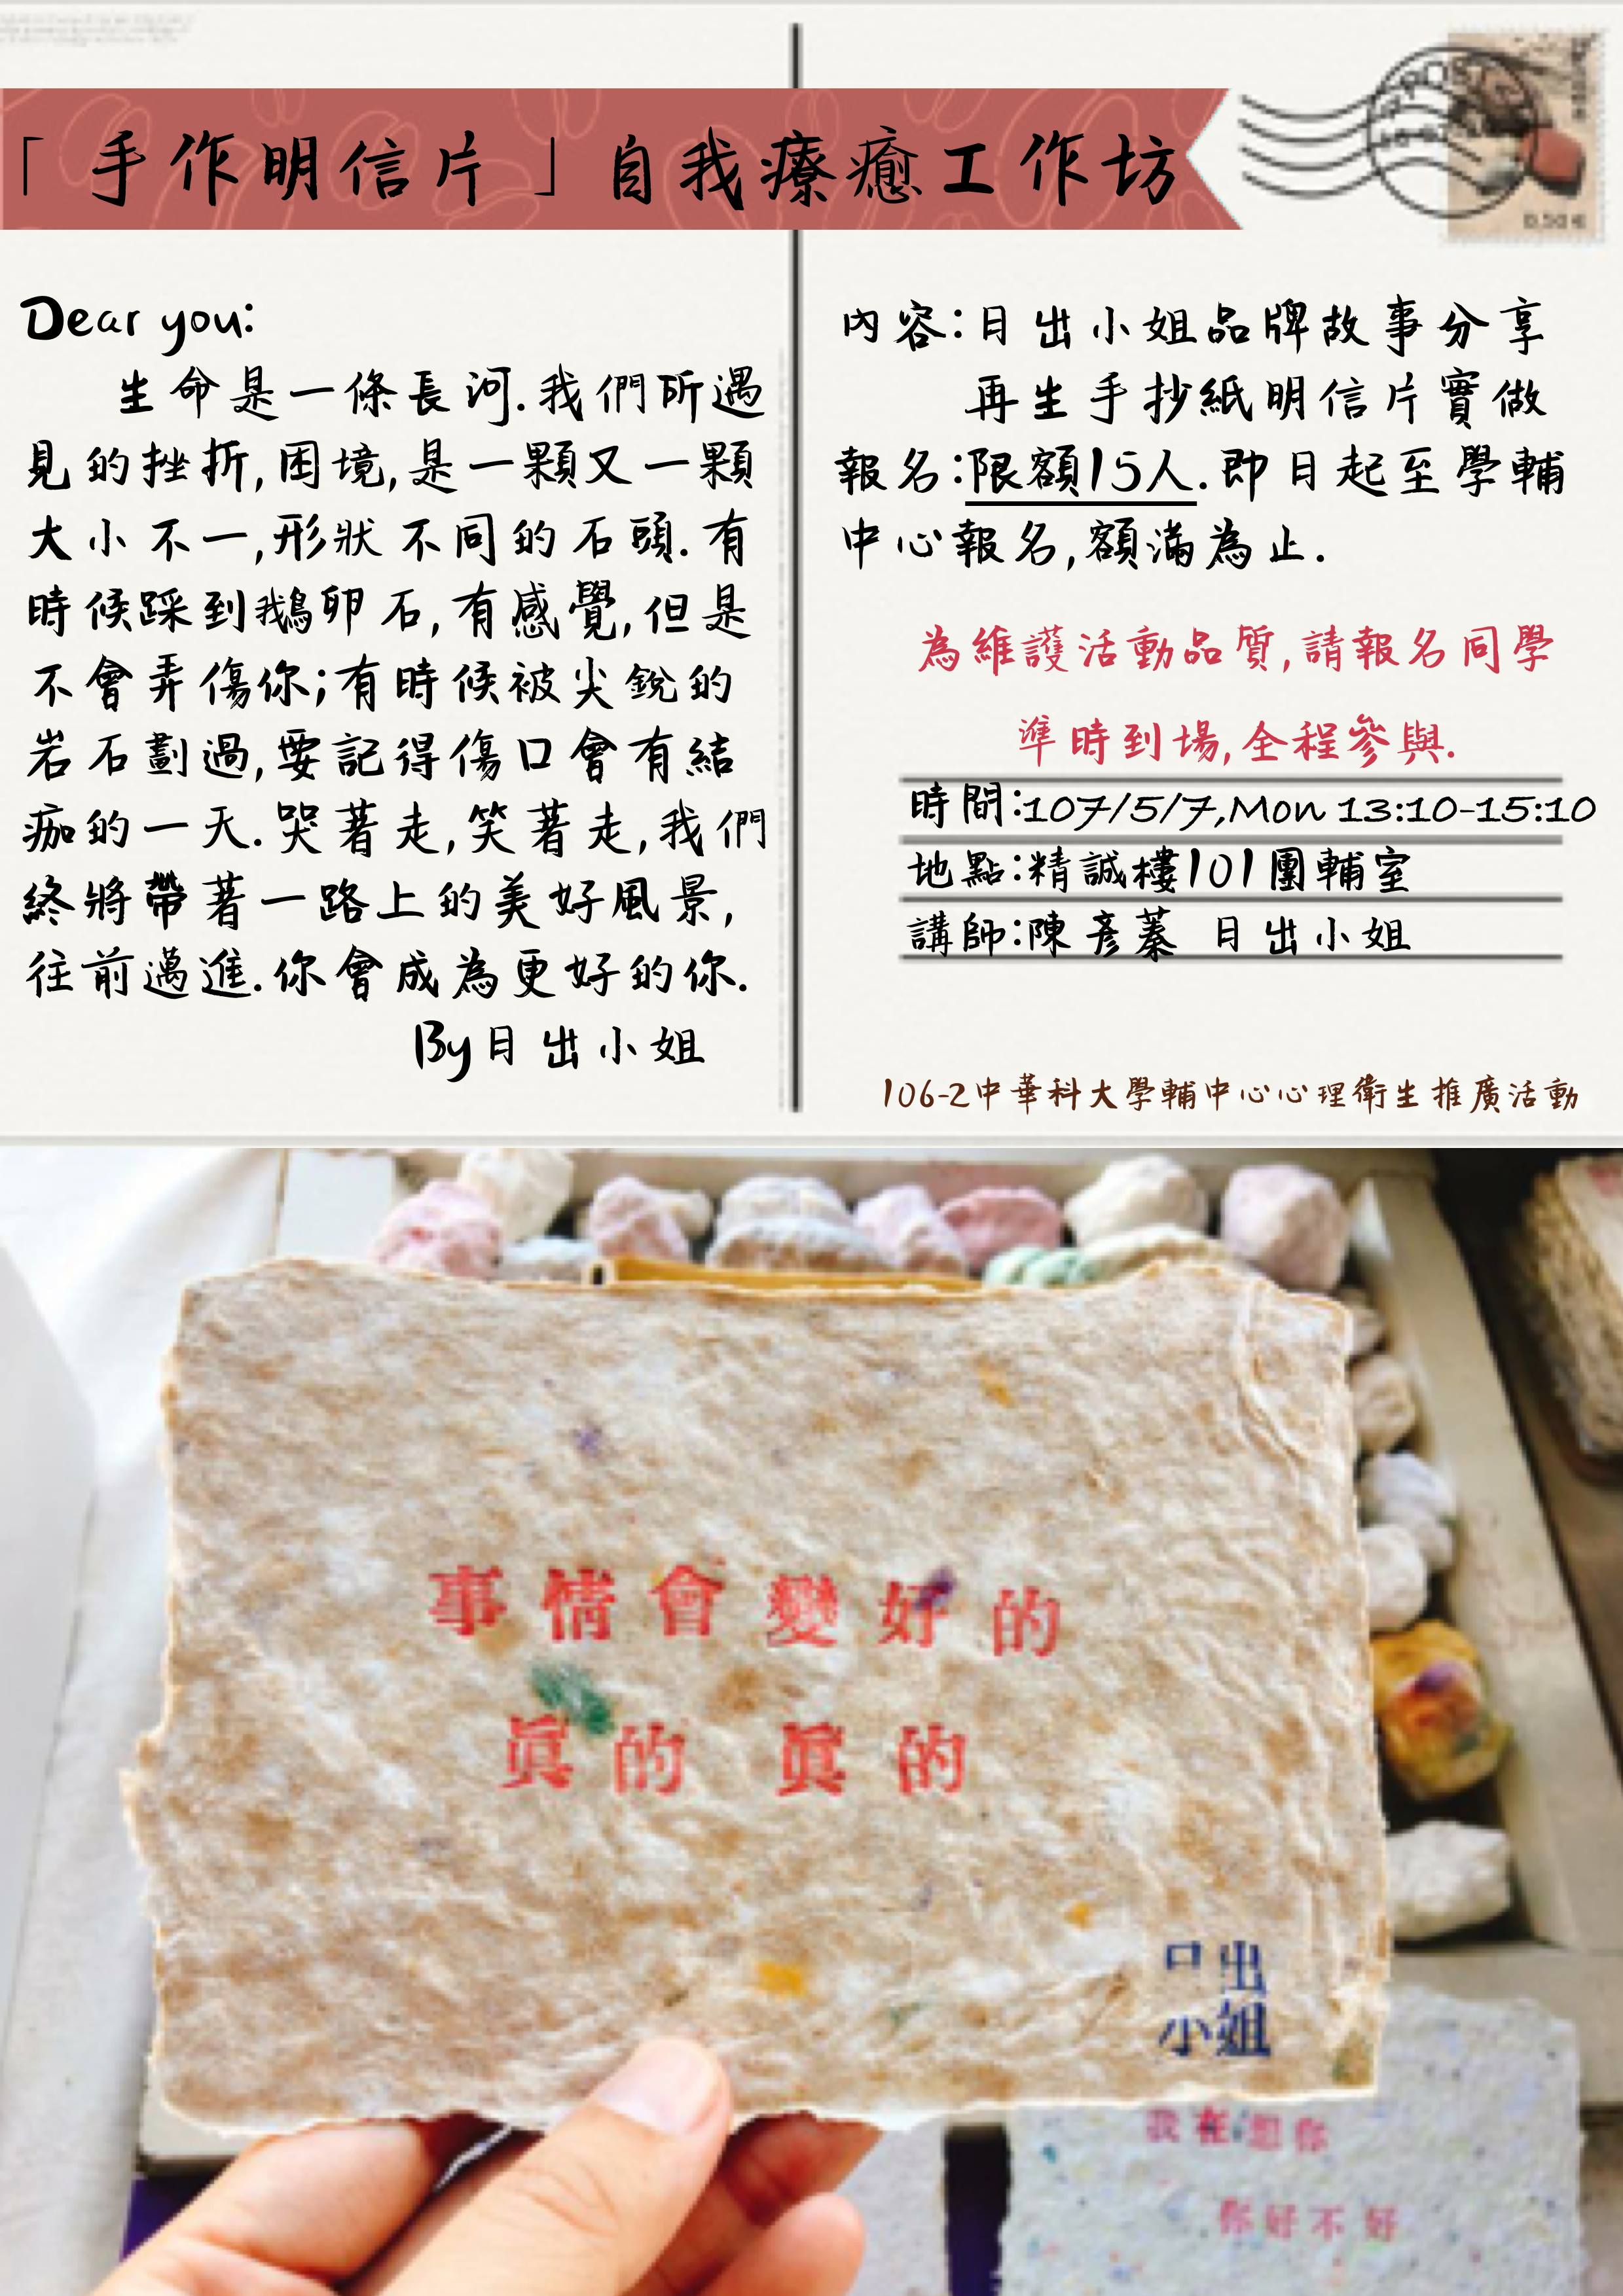 「手作明信片」自我療癒工作坊
Dear you:
生命是一條長河.我們所遇
見的挫折,困境,是一顆又一顆
大小不一,形狀不同的石頭.有
時候踩到鵝卵石,有感覺,但是
不會弄傷你;有時候被尖銳的
岩石劃過,要記得傷口會有結
痂的一天.哭著走,笑著走,我們
終將帶著一路上的美好風景,
往前邁進.你會成為更好的你.
By日出小姐
內容:日出小姐品牌故事分享
再生手抄紙明信片實做
報名:限額15人.即日起至學輔
中心報名,額滿為止.
為維護活動品質,請報名同學
準時到場,全程參與.
時間:107/5/7,Mon 13:10-15:10
地點:精誠樓101團輔室
講師:陳彥蓁 日出小姐
106-2中華科大學輔中心心理衛生推廣活動
0,50 €
事情會變好的
真的 真的
日出
小姐
我在想你
你好不好